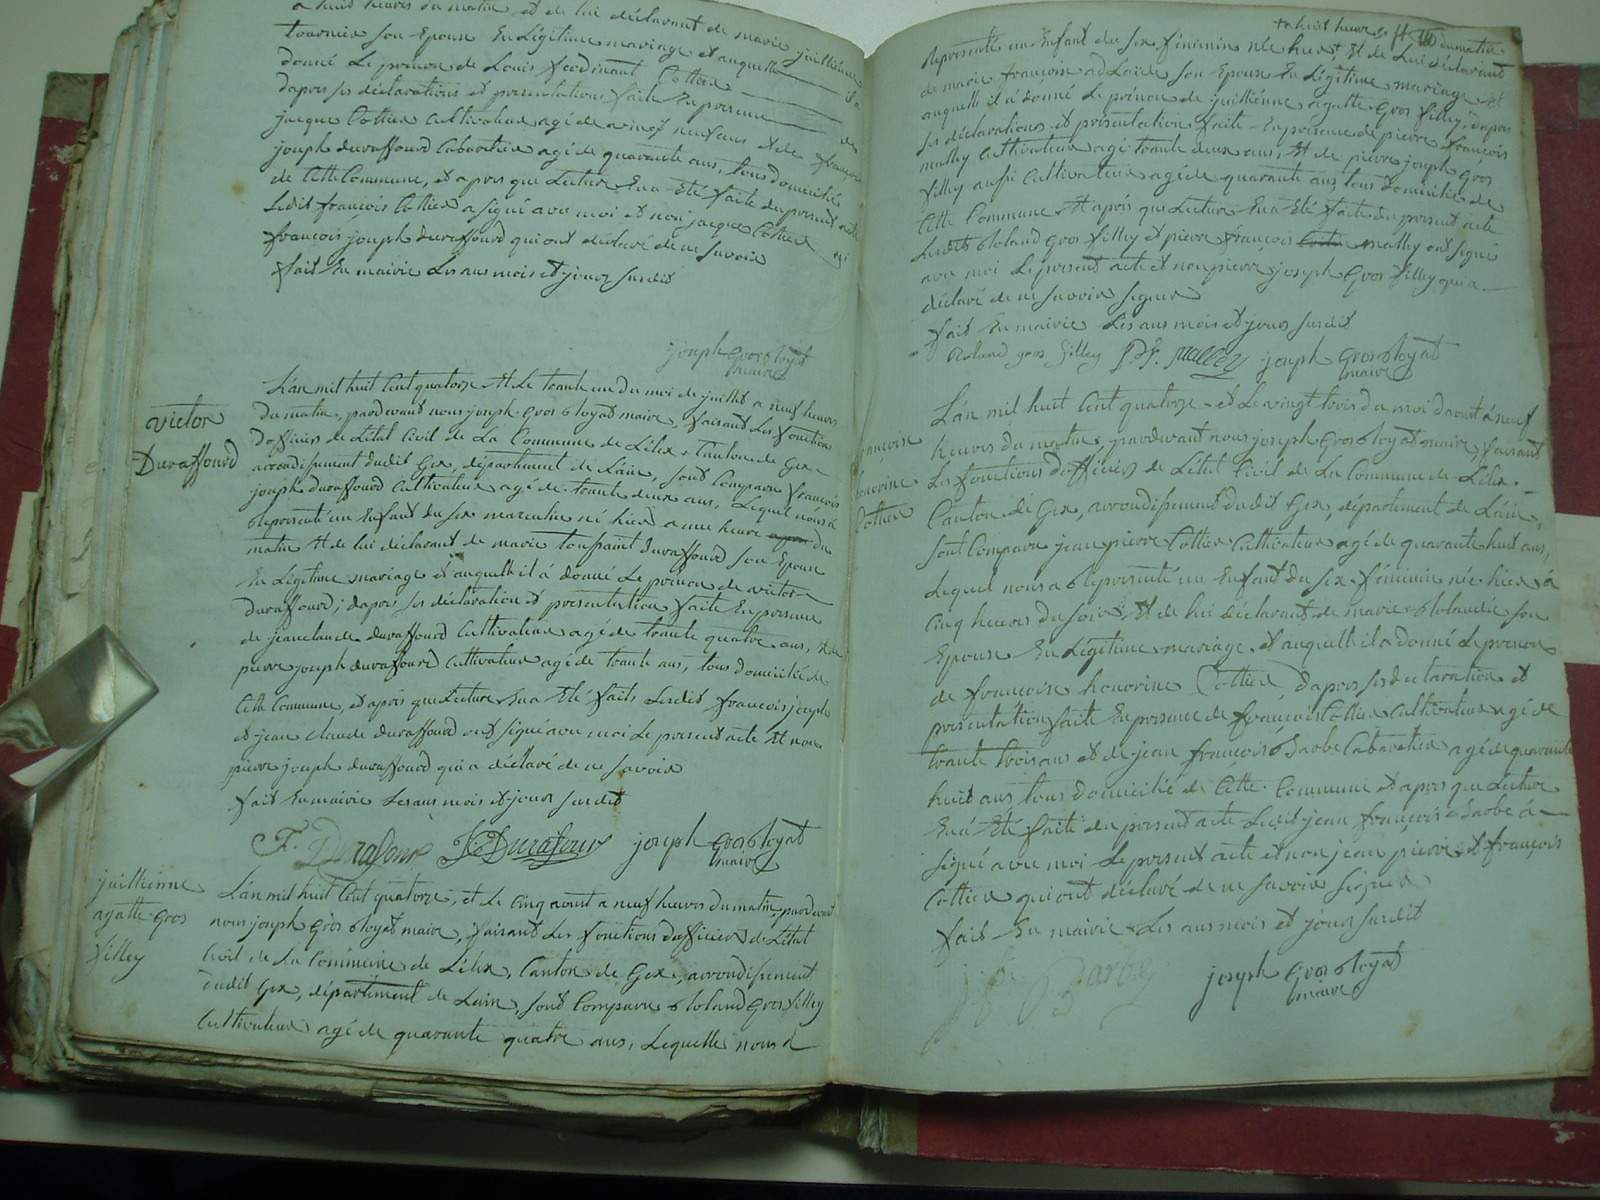 a huit heures du matin, et de lui déclarant de marie juillienne
tournier son Epouse En Légitime mariage et auquelle il a
donné Le prénom de Louis ferdinant Cottier
dapres ses déclarations et présentations faite En presence de
jacque Cottier Cultivateur agé de vingt neuf ans et de françois
joseph duraffourd Cabaretier agé de quarante ans, tous domicilié
de Cette Commune, et apres que Lecture En a Eté faite du présent acte
Ledit françois Cottier a signé avec moi et non jacque Cottier et
françois joseph duraffourd qui ont déclaré de ne savoir
fait En mairie Les ans mois et jours susdit
joseph grosbloyat
maire
victor
Duraffourd
L'an mil huit Cent quatorze et Le trante un du moi de juillet a neuf heures
du matin, pardevant nous joseph Gros bloyat maire, faisant Les fonction
dofficier de Létat Civil de La Commune de Lélex, Canton de Gex
arrondisement dudit Gex, département de Lain, sont Comparu françois
joseph duraffourd Cultivateur agé de trante deux ans, Lequel nous à
représenté un Enfant du sex masculin né hier a une heure apres du
matin et de lui déclarant de marie toussaint duraffourd son Epouse
En Légitime mariage et auquelle il à donné Le prénom de victor
duraffourd; dapres ses déclaration et présentation faite En presence
de jeanclaude duraffourd Cultivateur agé de trante quatre ans, et de
pierre joseph duraffourd Cultivateur agé de trante ans, tous domicilié de
Cette Commune, et apres que Lecture En a Eté faite Lesdit françois joseph
et jean claude duraffourd ont signé avec moi Le présent acte et non
pierre joseph duraffourd qui a déclaré de ne savoir
fait En mairie Les ans mois et jours susdit
F. Durafour JC Durafour joseph grosbloyat
maire
juillienne
agatte Gros
filley
L'an mil huit Cent quatorze, et Le Cinq aout a neuf heures du matin, pardevant
nous joseph Gros bloyat maire, faisant Les fonctions dofficier de Létat
Civil de La Commune de Lélex, Canton de Gex, arrondisement
dudit Gex, département de Lain, sont Comparu roland Gros filley
Cultivateur agé de quarante quatre ans, Lequelle nous à
a huit heures du matin
Représenté un Enfant du sex féminin née hier, et de Lui déclarant
de marie françoise adLaide son Epouse En Légitime mariage et
auquelle il à donné Le prénom de juillienne agatte Gros filley, dapres
ses déclarations et présentation faite En présence de pierre françois
mathey Cultivateur agé trante deux ans, et de pierre joseph Gros
filley aussi Cultivateur agé de quarante ans tous domicilié de
Cette Commune et apres que Lecture En a Eté faite du présent acte
Lesdits roland Gros filley et pierre françois mathey ont signé
avec moi Le présent acte et non pierre joseph Gros filley qui a
déclaré de ne savoir signer
fait En mairie Les ans mois et jours susdit
Roland gros filley joseph grosbloyat
maire
françoise
honorine
Cottier
L'an mil huit Cent quatorze et Le vingt trois du moi daout à neuf
heures du matin, pardevant nous joseph Gros bloyat maire, faisant
Les fonctions dofficier de Létat Civil de La Commune de Lélex
Canton de Gex, arrondisement dudit Gex, département de Lain,
sont Comparu jean pierre Cottier Cultivateur agé de quarante huit ans,
Lequel nous a représenté un Enfant du sex féminin née hier à
Cinq heures du soir et de lui déclarant de marie rolandie son
Epouse En Légitime mariage, et auquelle il a donné Le prénom
de françoise honorine Cottier, dapres ses declaration et
présentation faite En presence de françois Cottier Cultivateur agé de
trante trois ans et de jean françois Barbe Cabaretier agé de quarante
huit ans tous domicilié de Cette Commune et apres que Lecture
En à Eté faite du présent acte Ledit jean françois Barbe à
signé avec moi Le présent acte et non jean pierre et françois
Cottier qui ont déclaré de ne savoir signer
fait En mairie Les ans mois et jours susdit
joseph grosbloyat
maire